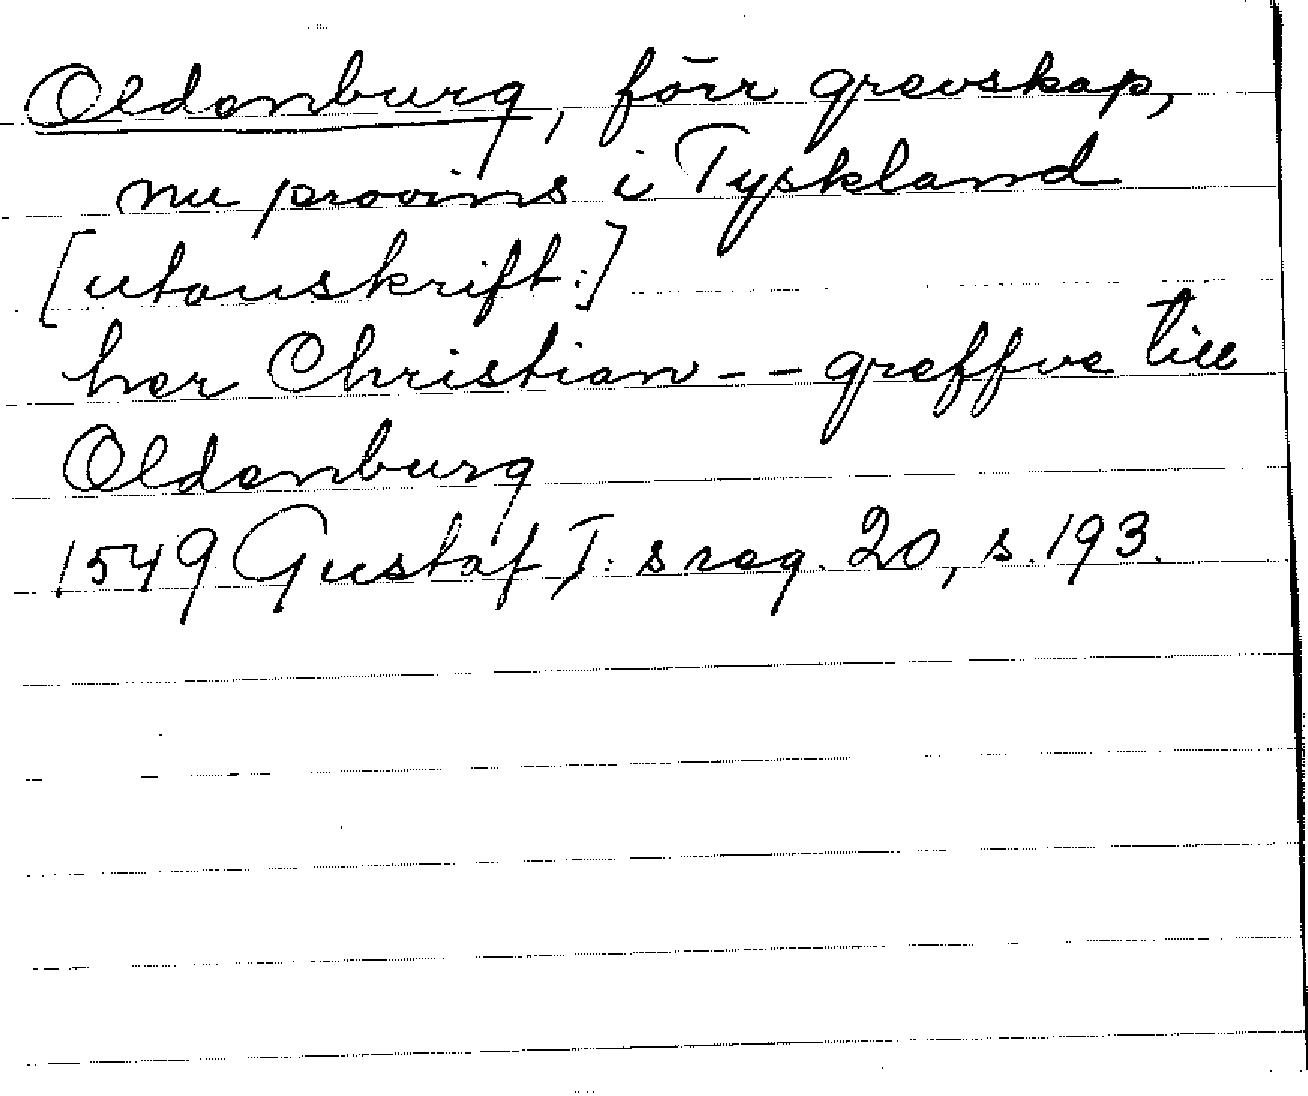 Oldenburg, förr grevskap,
nu provins i Tyskland
[utanskrift:]
her Christian - - greffve till
Oldenburg
1549 Gustaf I:s reg. 20, s. 193.